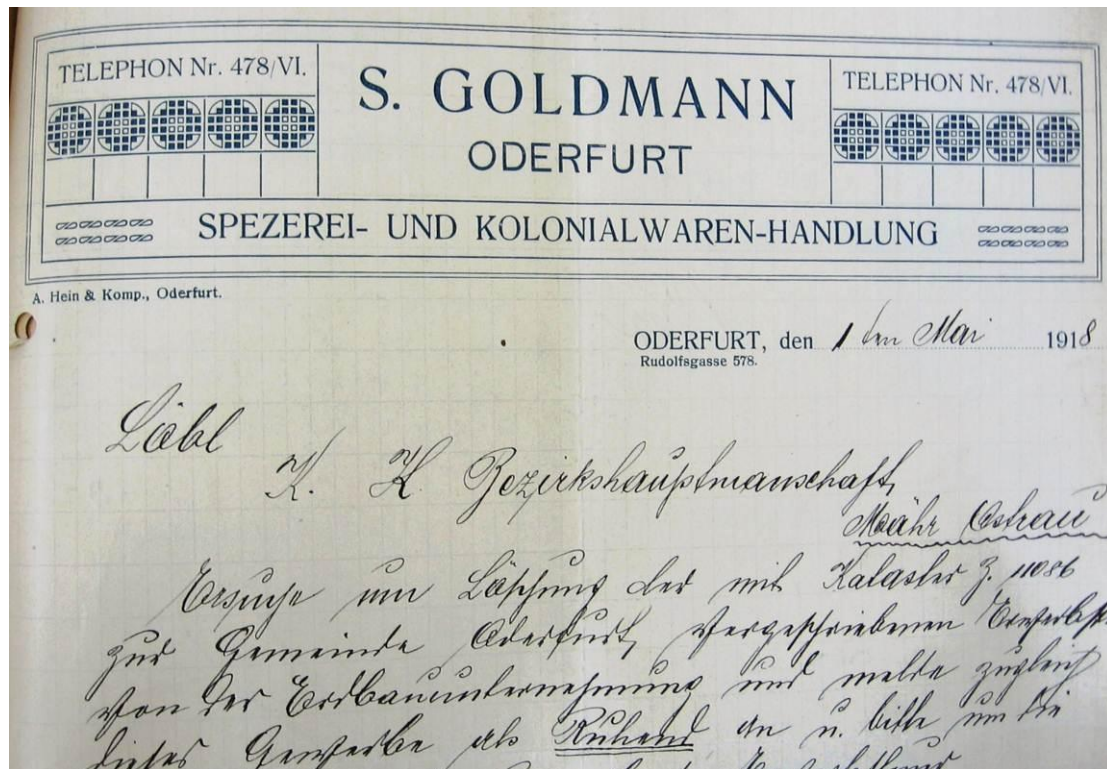 TELEPHON Nr. 478/VI.
S. GOLDMANN
TELEPHON Nr. 478/VI.
ODERFURT
SPEZEREI- UND KOLONIALWAREN-HANDLUNG
A. Hein & Komp., Oderfurt.
ODERFURT, den 1 ten Mai 1918
Rudolfsgasse 578.
Löbl
K. K. Bezirkshauptmanschaft,
Mähr Ostrau
Ersuche um Löschung der mit Kataster Z. 11086
zur Gemeinde Oderfurt, Vorgeschriebenen
von der Erdbauunternehmung und melde zugleich
dieses Gewerbe als Ruhend an u. bitte um die